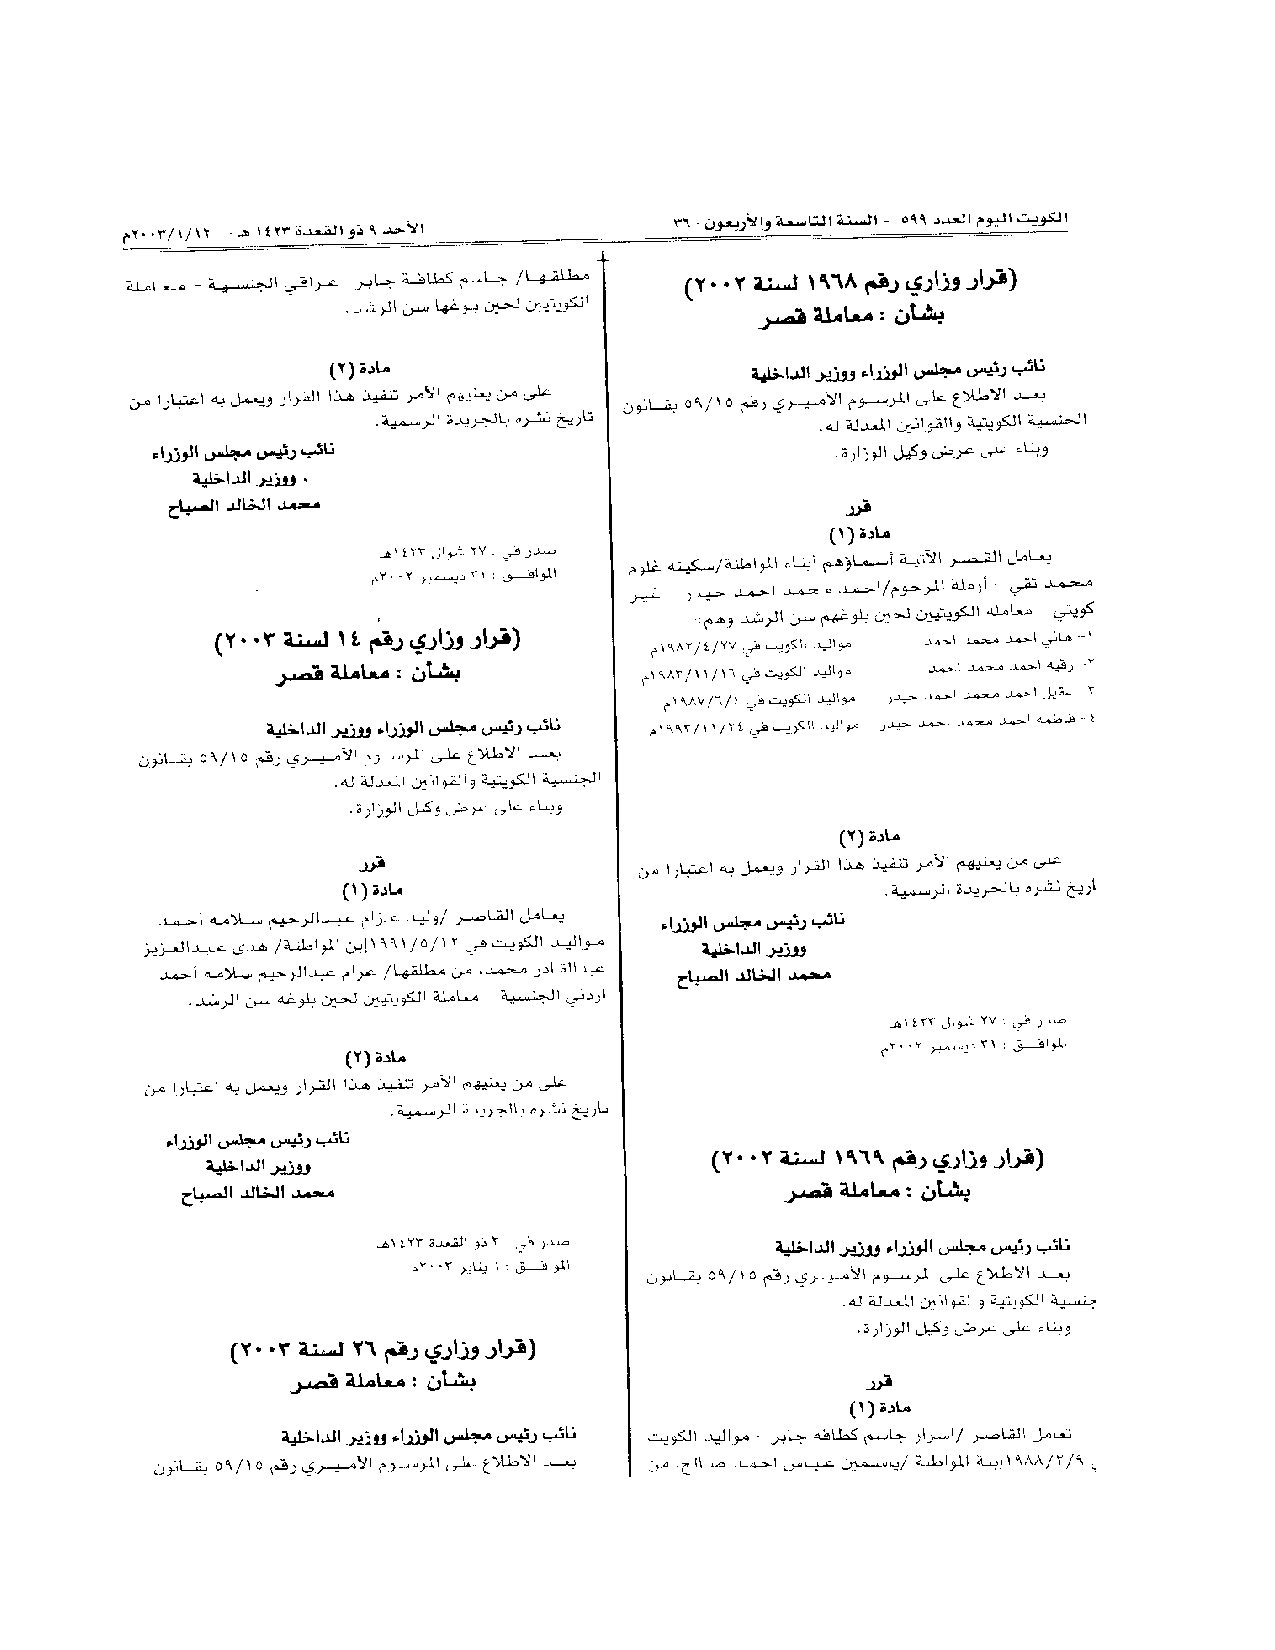 الكويت اليوم العدد ٥٩٩ - السنة التاسعة والأربعون - ٣٦
الأحد ٩ ذو القعدة ١٤٢٣ هـ - ٢٠٠٣/١/١٢م
(قرار وزاري رقم ١٩٦٨ لسنة ٢٠٠٢)
بشأن : معاملة قصر
نائب رئيس مجلس الوزراء ووزير الداخلية
بعد الاطلاع على المرسوم الأميري رقم ٥٩/١٥ بقانون
الجنسية الكويتية والقوانين المعدلة له.
وبناء على عرض وكيل الوزارة.
قرر
مادة (١)
يعامل القصر الآتية أسماؤهم أبناء المواطنة/سكينه غلوم
محمد تقي - أرملة المرحوم/احمد محمد احمد حيدر غير
كويتي معاملة الكويتيين لحين بلوغهم سن الرشد وهم:
١- هاني احمد محمد احمد مواليد الكويت في ١٩٨٢/٤/٢٧م
٢- رقيه احمد محمد احمد مواليد الكويت في ١٩٨٣/١١/١٦م
٣ عقيل احمد محمد احمد حيدر مواليد الكويت في ١٩٨٧/٦/١م
٤- فاطمه احمد محمد احمد حيدر مواليد الكويت في ١٩٩٢/١١/٢٤م
مادة (٢)
على من يعنيهم الأمر تنفيذ هذا القرار ويعمل به اعتبارا من
اريخ نشره بالجريدة الرسمية.
نائب رئيس مجلس الوزراء
ووزير الداخلية
محمد الخالد الصباح
صدر في : ٢٧ شوال ١٤٢٣هـ
الموافق : ٣١ ديسمبر ٢٠٠٢م
(قرار وزاري رقم ١٩٦٩ لسنة ٢٠٠٢)
بشأن : معاملة قصر
نائب رئيس مجلس الوزراء ووزير الداخلية
بعد الاطلاع على المرسوم الأميري رقم ٥٩/١٥ بقانون
جنسية الكويتية والقوانين المعدلة له.
وبناء على عرض وكيل الوزارة.
قرر
مادة (١)
تعامل القاصر /اسرار جاسم كطافه جابر - مواليد الكويت
ي ١٩٨٨/٢/٩ابنة المواطنة /ياسمين عباس احمد صالح من
مطلقها/ جاسم كطافة جابر عراقي الجنسية - معاملة
الكويتيين لحين بلوغها سن الرشد.
مادة (٢)
على من يعنيهم الأمر تنفيذ هذا القرار ويعمل به اعتبارا من
تاريخ نشره بالجريدة الرسمية.
نائب رئيس مجلس الوزراء
ووزير الداخلية
محمد الخالد الصباح
صدر في : ٢٧ شوال ١٤٢٣هـ
الموافق : ٣١ ديسمبر ٢٠٠٢م
(قرار وزاري رقم ١٤ لسنة ٢٠٠٣)
بشأن : معاملة قصر
نائب رئيس مجلس الوزراء ووزير الداخلية
بعد الاطلاع على المرسوم الأميري رقم ٥٩/١٥ بقانون
الجنسية الكويتية والقوانين المعدلة له.
وبناء على عرض وكيل الوزارة.
قرر
مادة (١)
يعامل القاصر /وليد عزام عبدالرحيم سلامه أحمد.
مواليد الكويت في ١٩٦١/٥/١٢إبن المواطنة/ هدى عبدالعزيز
عبد القادر محمد، من مطلقها/ عزام عبدالرحيم سلامه أحمد
اردني الجنسية معاملة الكويتيين لحين بلوغه سن الرشد.
مادة (٢)
على من يعنيهم الأمر تنفيذ هذا القرار ويعمل به اعتبارا من
تاريخ نشره بالجريدة الرسمية.
نائب رئيس مجلس الوزراء
ووزير الداخلية
محمد الخالد الصباح
صدر في ٣ ذو القعدة ١٤٢٣هـ
الموافق : ٦ يناير ٢٠٠٣م
(قرار وزاري رقم ٢٦ لسنة ٢٠٠٣)
بشأن : معاملة قصر
نائب رئيس مجلس الوزراء ووزير الداخلية
بعد الاطلاع على المرسوم الأميري رقم ٥٩/١٥ بقانون